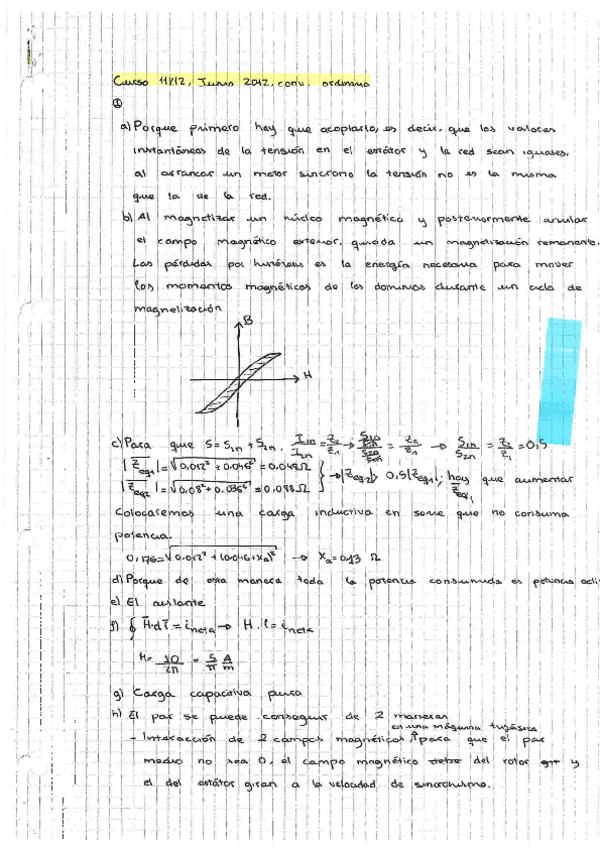 Curso 11/12, Junio 2012, conv. ordinaria
①
a) Porque primero hay que acoplarlo, es decir, que los valores
instantáneos de la tensión en el estátor y la red sean iguales,
al arrancar un motor síncrono la tensión no es la misma
que la de la red.
b) Al magnetizar un núcleo magnético y posteriormente anular
el campo magnético exterior, queda un magnetización remanente.
Las pérdidas por histéresis es la energía necesaria para mover
los momentos magnéticos de los dominios durante un ciclo de
magnetización
B
H
c) Para que S = S1n + S2n, I1n/I2n = Z2/Z1 → = Z2/Z1 → S1n/S2n = Z2/Z1 = 0,5
|Zeq1| = √0.012² + 0.046² = 0.048Ω
|Zeq2| = √0.08² + 0.036² = 0.088Ω } → |Zeq2| > 0,5|Zeq1|; hay que aumentar Zeq1
Colocaremos una carga inductiva en serie que no consuma
potencia.
0,176 = √0.012² + (0.046+Xa)² → Xa = 0.13 Ω
d) Porque de esta manera toda la potencia consumida es potencia acti
e) El aislante
f) ∮ H·dl = i neta → H·l = i neta
H = 10/2π = 5/π A/m
g) Carga capacitiva pura
h) El par se puede conseguir de 2 maneras
en una máquina trifásica
- Interacción de 2 campos magnéticos, ↑ para que el par
medio no sea 0, el campo magnético del rotor y
el del estátor giran a la velocidad de sincronismo.